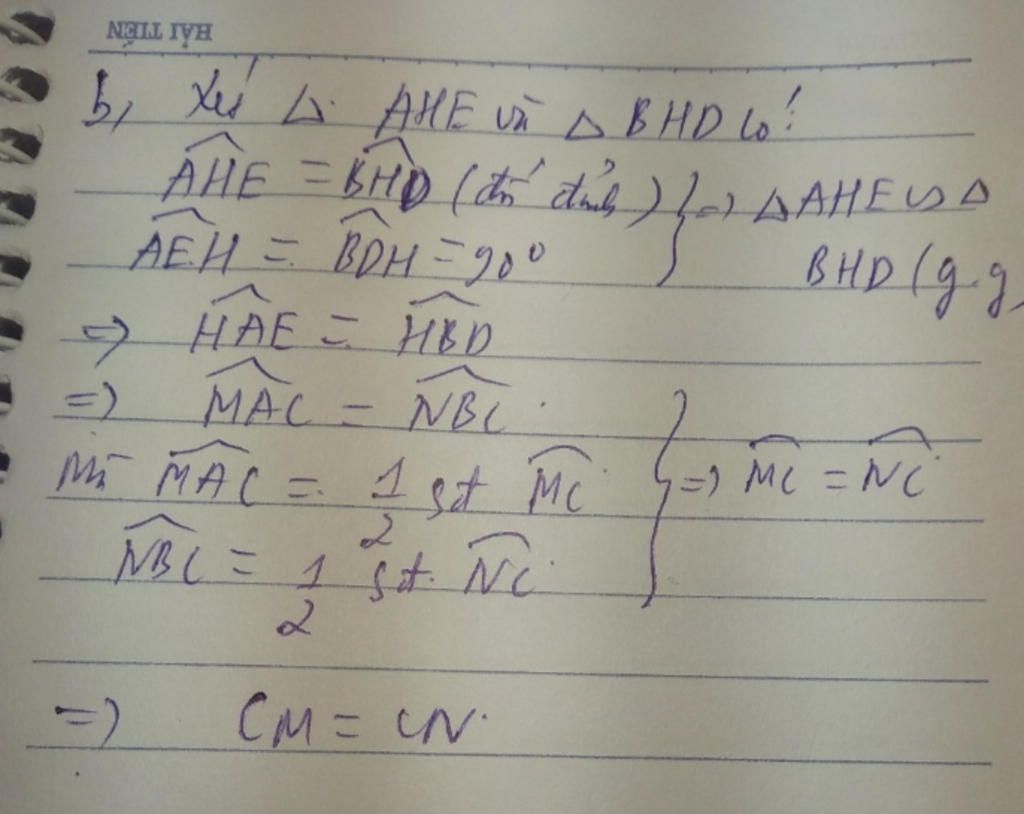 HẢI TIẾN
b, Xét △ AHE và △ BHD có:
AHE = BHD (đối đỉnh) } => △AHE ∽ △
AEH = BDH = 90° BHD (g.g)
=> HAE = HBD
=> MAC = NBC
Mà MAC = 1/2 sđ MC } => MC = NC
NBC = 1/2 sđ NC
=> CM = CN.